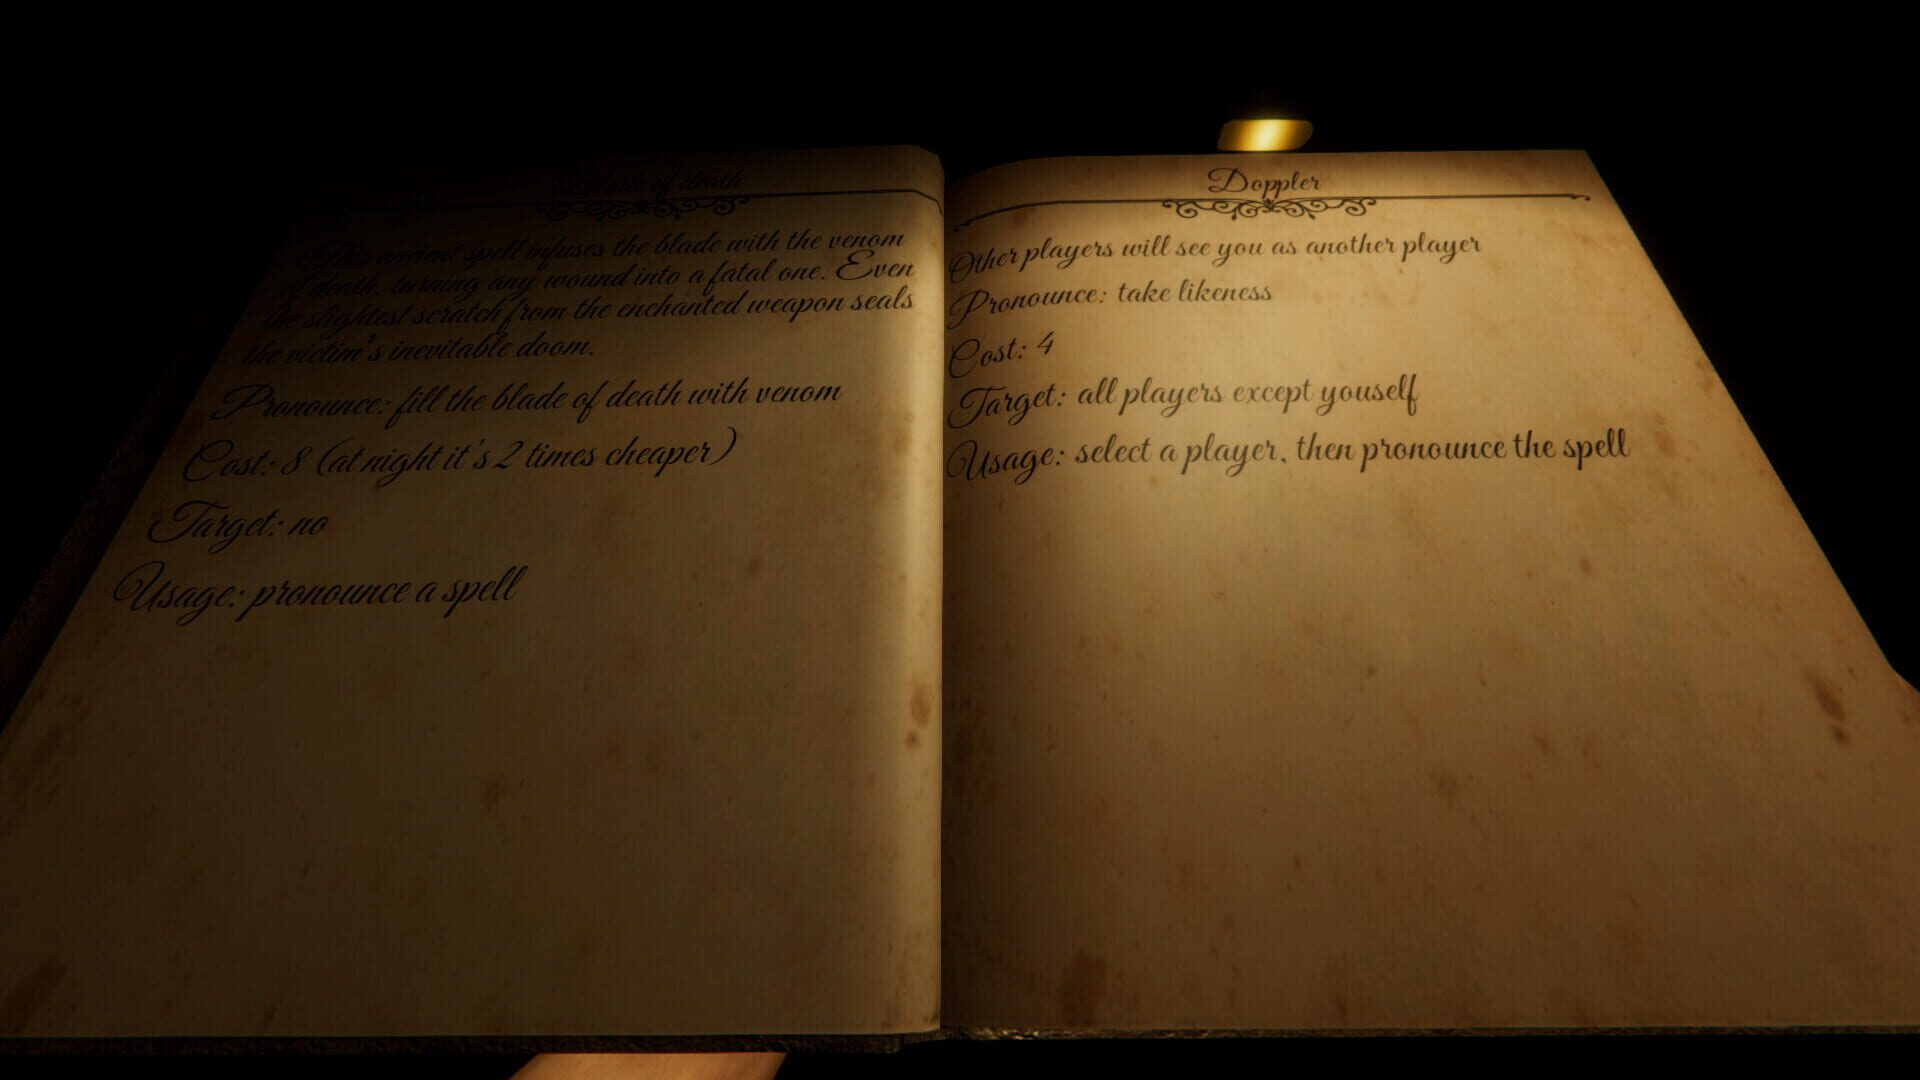 Blade of death
This ancient spell infuses the blade with the venom
of death, turning any wound into a fatal one. Even
the slightest scratch from the enchanted weapon seals
the victim's inevitable doom.
Pronounce: fill the blade of death with venom
Cost: 8 (at night it's 2 times cheaper)
Target: no
Usage: pronounce a spell
Doppler
Other players will see you as another player
Pronounce: take likeness
Cost: 4
Target: all players except youself
Usage: select a player, then pronounce the spell